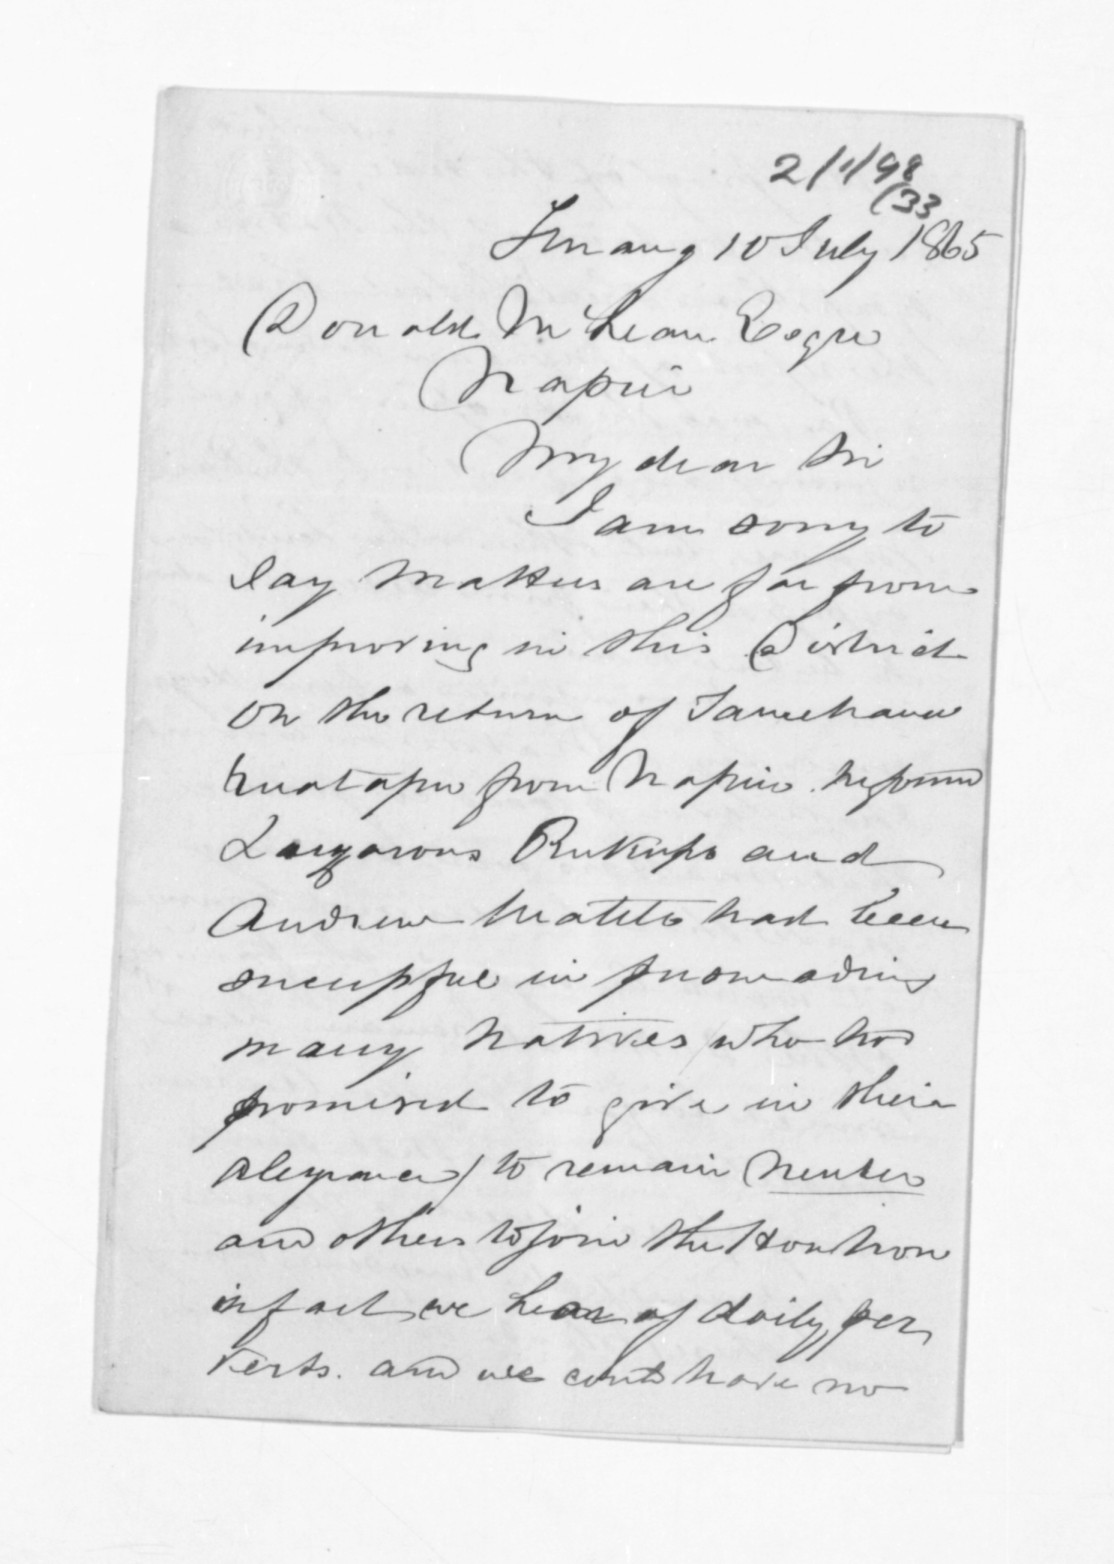 2/1/98
(33
10 July 1865
Donald McLean Esqre
Napier
My dear Sir
I am sorry to
say matters are far from
improving in this District
on the return of Tamehana
Ruatapu from Napier. he found
Lazzarous Rukupo and
Andrew Matete had been
sucessful in persuading
many Natives who had
promised to give in their
alegance / to remain Neuter
and others to join the Hau hau
in fact we hear of daily per
verts. and we could have no